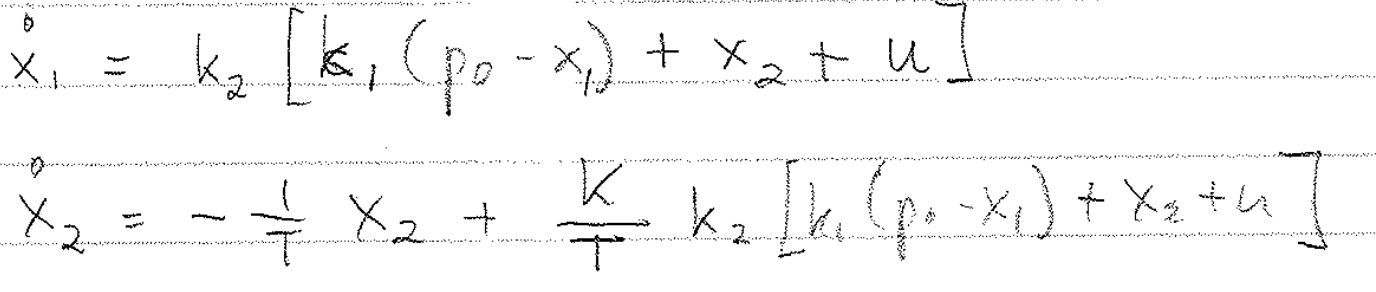 ẋ₁ = k₂ [k₁ (p₀ - x₁) + x₂ + u]
ẋ₂ = - 1/T x₂ + K/T k₂ [k₁ (p₀ - x₁) + x₂ + u]